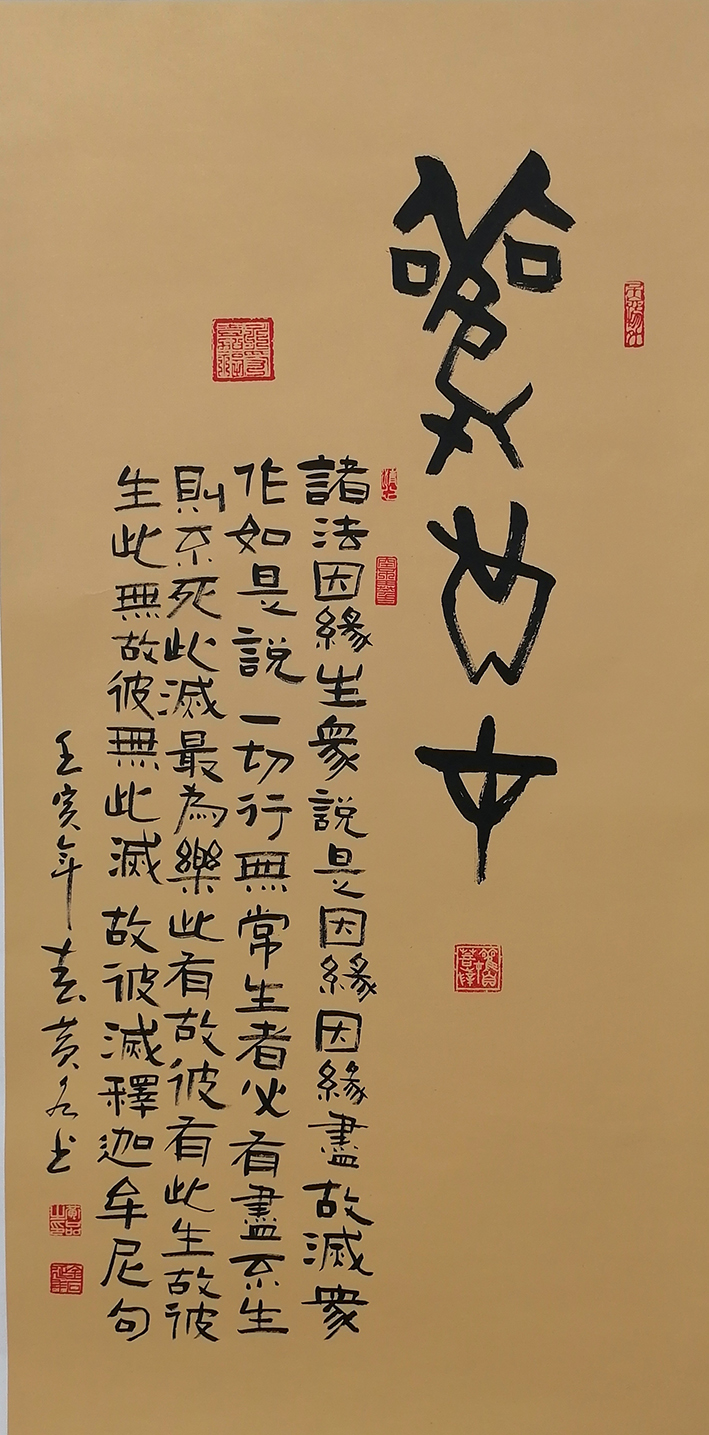 諸法因緣生衆說是因緣因緣盡故滅衆
作如是說一切行無常生者必有盡不生
則不死此滅最為樂此有故彼有此生故彼
生此無故彼無此滅故彼滅釋迦牟尼句
壬寅年春黄书